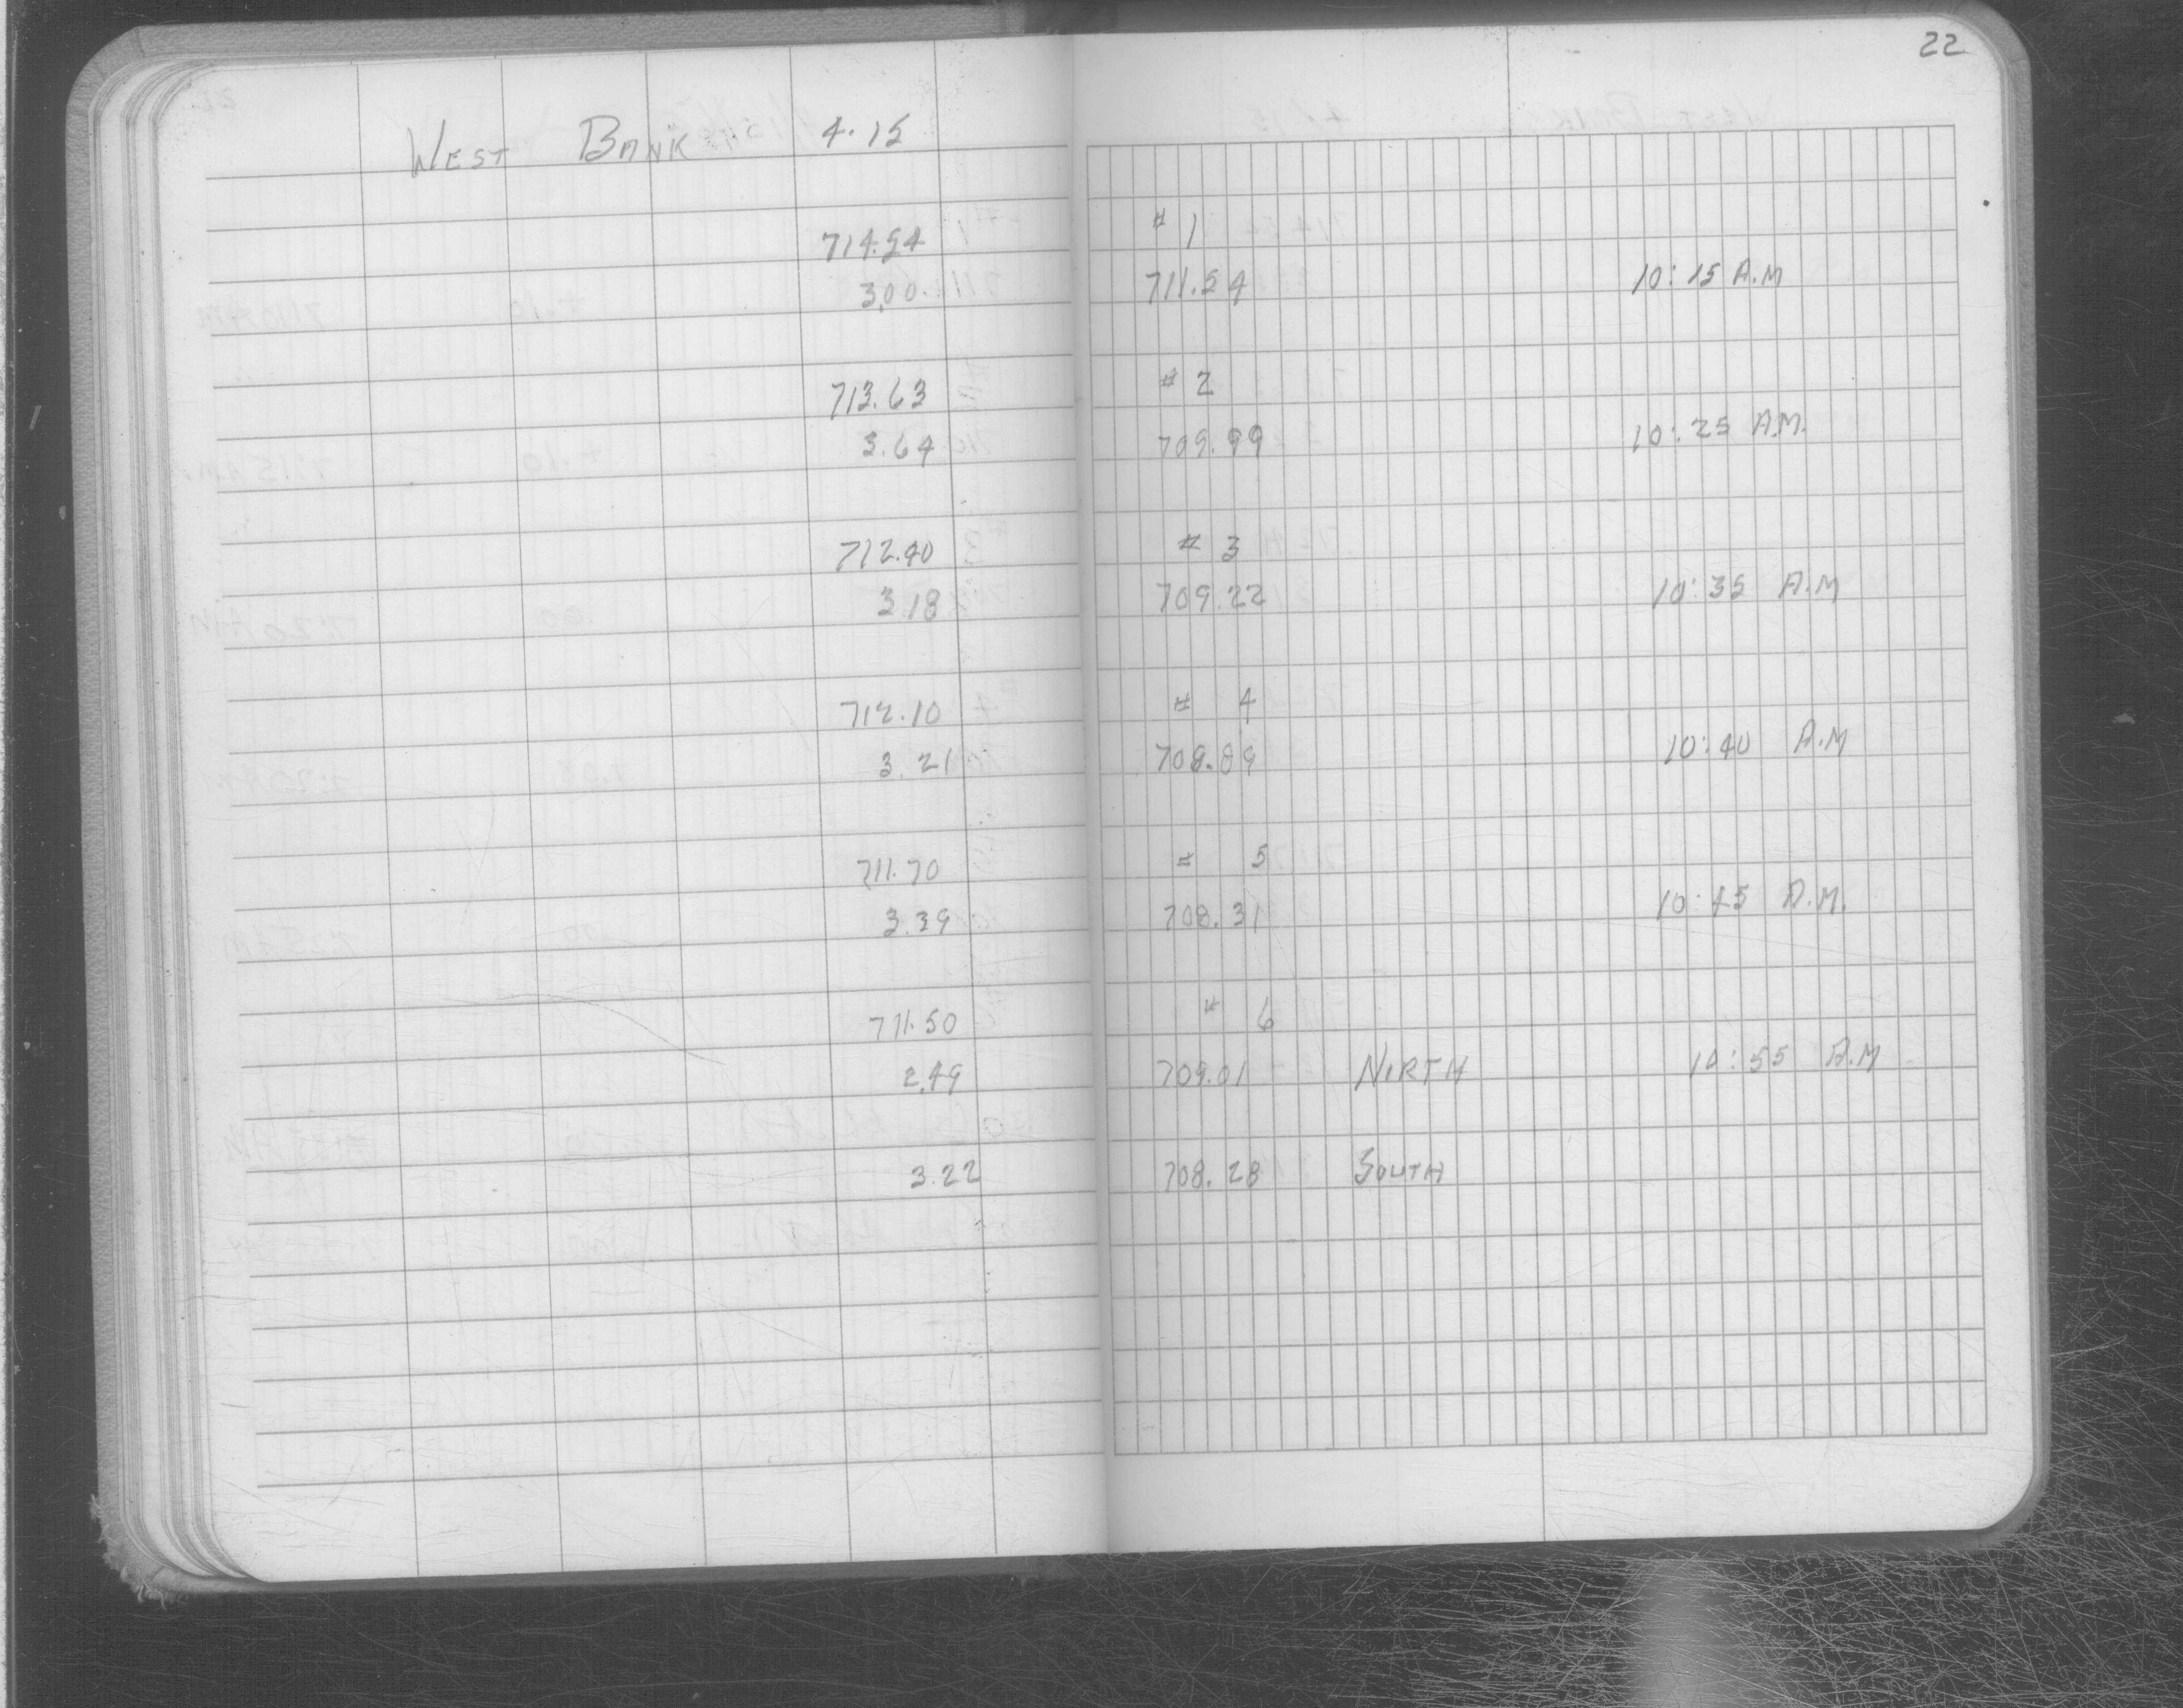 22
WEST BANK 4.15
714.54 # 1
3.00 711.54 10:15 A.M
713.63 # 2
3.64 709.99 10:25 A.M.
712.40 # 3
3.18 709.22 10:35 A.M
712.10 # 4
3.21 708.89 10:40 A.M
711.70 # 5
3.39 708.31 10:45 A.M.
711.50 # 6
2.49 709.01 NORTH 10:55 A.M
3.22 708.28 SOUTH